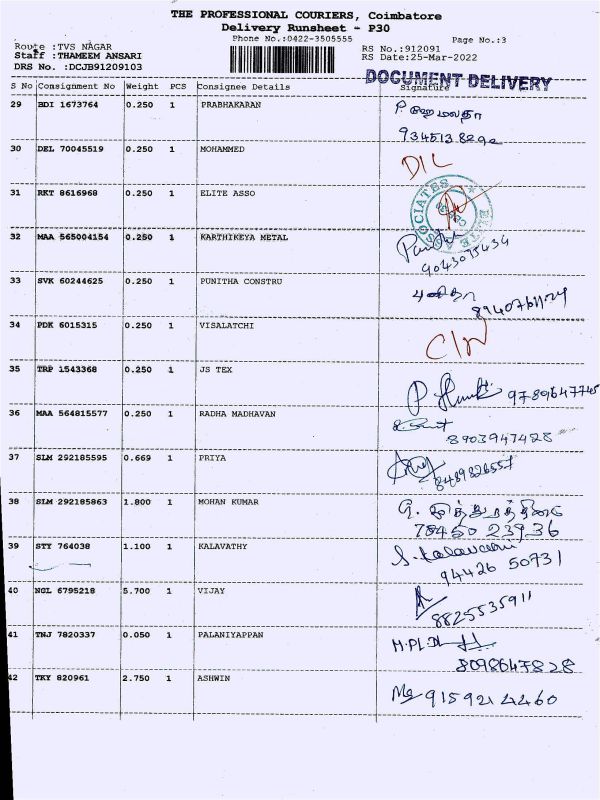 THE PROFESSIONAL COURIERS, Coimbatore
Delivery Runsheet - P30
Phone No.:0422-3505555
Page No.:3
Route :TVS NAGAR
RS No.:912091
Staff :THAMEEM ANSARI
RS Date:25-Mar-2022
DRS No. :DCJB91209103
DOCUMENT DELIVERY
S No Consignment No Weight PCS Consignee Details Signature
29 BDI 1673764 0.250 1 PRABHAKARAN
P. ஹேமலதா
9345138292
30 DEL 70045519 0.250 1 MOHAMMED
D/L
31 RKT 8616968 0.250 1 ELITE ASSO
ELITE ASSOCIATES
32 MAA 565004154 0.250 1 KARTHIKEYA METAL
9043075434
33 SVK 60244625 0.250 1 PUNITHA CONSTRU
34 PDK 6015315 0.250 1 VISALATCHI
35 TRP 1543368 0.250 1 JS TEX
9789647745
36 MAA 564815577 0.250 1 RADHA MADHAVAN
8903947428
37 SLM 292185595 0.669 1 PRIYA
8489826557
38 SLM 292185863 1.800 1 MOHAN KUMAR
78450 23936
39 STY 764038 1.100 1 KALAVATHY
S. Kalavathi
94426 50731
40 NGL 6795218 5.700 1 VIJAY
8825535911
41 TNJ 7820337 0.050 1 PALANIYAPPAN
M.PL.
8098647828
42 TKY 820961 2.750 1 ASHWIN
9159214460